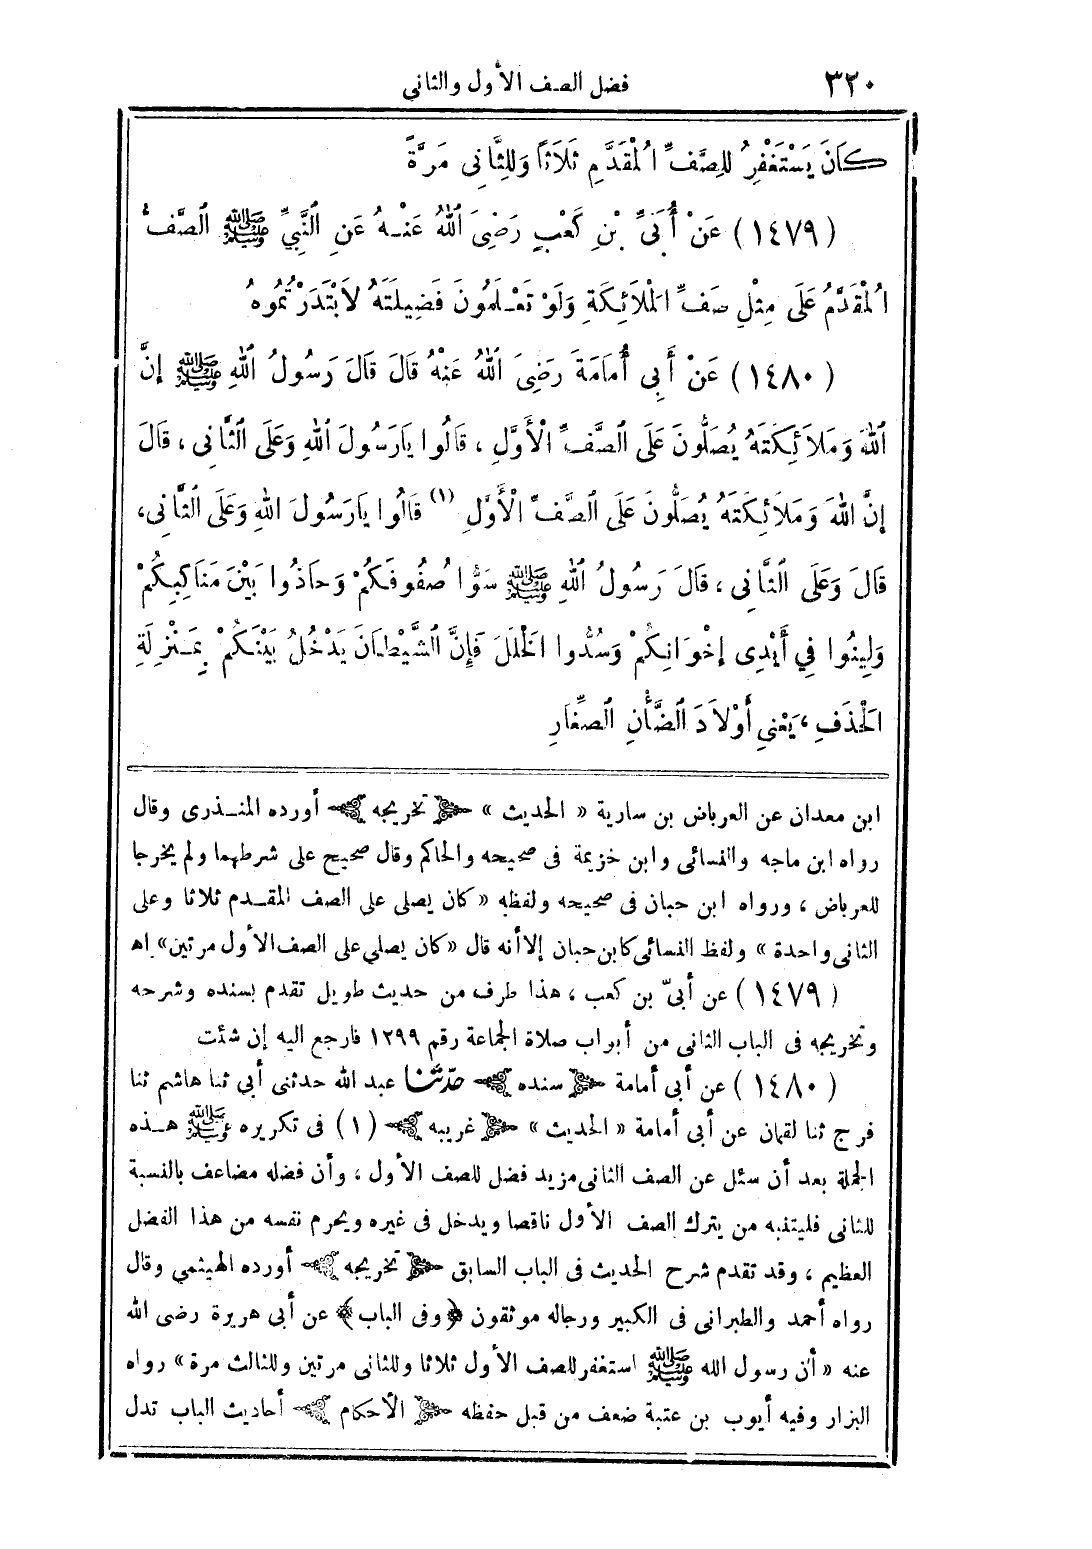 ٣٢٠ فضل الصف الأول والثاني
كَانَ يَسْتَغْفِرُ لِلصَّفِّ الْمُقَدَّمِ ثَلَاثًا وَلِلثَّانِى مَرَّةً
(١٤٧٩) عَنْ أُبَىِّ بْنِ كَعْبٍ رَضِىَ اللهُ عَنْهُ عَنِ النَّبِيِّ ﷺ الصَّفُّ
الْمُقَدَّمُ عَلَى مِثْلِ صَفِّ الْمَلَائِكَةِ وَلَوْ تَعْلَمُونَ فَضِيلَتَهُ لَابْتَدَرْتُمُوهُ
(١٤٨٠) عَنْ أَبِى أُمَامَةَ رَضِىَ اللهُ عَنْهُ قَالَ قَالَ رَسُولُ اللهِ ﷺ إِنَّ
اللهَ وَمَلَائِكَتَهُ يُصَلُّونَ عَلَى الصَّفِّ الْأَوَّلِ ، قَالُوا يَارَسُولَ اللهِ وَعَلَى الثَّانِى ، قَالَ
إِنَّ اللهَ وَمَلَائِكَتَهُ يُصَلُّونَ عَلَى الصَّفِّ الْأَوَّلِ (١) قَالُوا يَارَسُولَ اللهِ وَعَلَى الثَّانِى،
قَالَ وَعَلَى الثَّانِى ، قَالَ رَسُولُ اللهِ ﷺ سَوُّا صُفُوفَكُمْ وَحَاذُوا بَيْنَ مَنَاكِبِكُمْ
وَلِينُوا فِي أَيْدِى إِخْوَانِكُمْ وَسُدُّوا الْخَلَلَ فَإِنَّ الشَّيْطَانَ يَدْخُلُ بَيْنَكُمْ بِمَنْزِلَةِ
الْحَذَفِ ، يَعْنِى أَوْلَادَ الضَّأْنِ الصِّغَارِ
ابن معدان عن العرباض بن سارية « الحديث » ﴿ تخريجه ﴾ أورده المنذرى وقال
رواه ابن ماجه والنسائى وابن خزيمة فى صحيحه والحاكم وقال صحيح على شرطهما ولم يخرجا
للعرباض ، ورواه ابن حبان فى صحيحه ولفظه « كان يصلى على الصف المقدم ثلاثا وعلى
الثانى واحدة » ولفظ النسائى كابن حبان إلا أنه قال « كان يصلي على الصف الأول مرتين » اه
(١٤٧٩) عن أبىّ بن كعب ، هذا طرف من حديث طويل تقدم بسنده وشرحه
وتخريجه فى الباب الثانى من أبواب صلاة الجماعة رقم ١٢٩٩ فارجع اليه إن شئت
(١٤٨٠) عن أبى أمامة ﴿ سنده ﴾ حدّثنا عبد الله حدثنى أبي ثنا هاشم ثنا
فرج ثنا لقمان عن أبى أمامة « الحديث » ﴿ غريبه ﴾ (١) فى تكريره ﷺ هذه
الجملة بعد أن سئل عن الصف الثانى مزيد فضل للصف الأول ، وأن فضله مضاعف بالنسبة
للثانى فليتنبه من يترك الصف الأول ناقصا ويدخل فى غيره ويحرم نفسه من هذا الفضل
العظيم ، وقد تقدم شرح الحديث فى الباب السابق ﴿ تخريجه ﴾ أورده الهيثمي وقال
رواه أحمد والطبرانى فى الكبير ورجاله موثقون ﴿ وفى الباب ﴾ عن أبى هريرة رضى الله
عنه « أن رسول الله ﷺ استغفر للصف الأول ثلاثا وللثانى مرتين وللثالث مرة » رواه
البزار وفيه أيوب بن عتبة ضعف من قبل حفظه ﴿ الأحكام ﴾ أحاديث الباب تدل